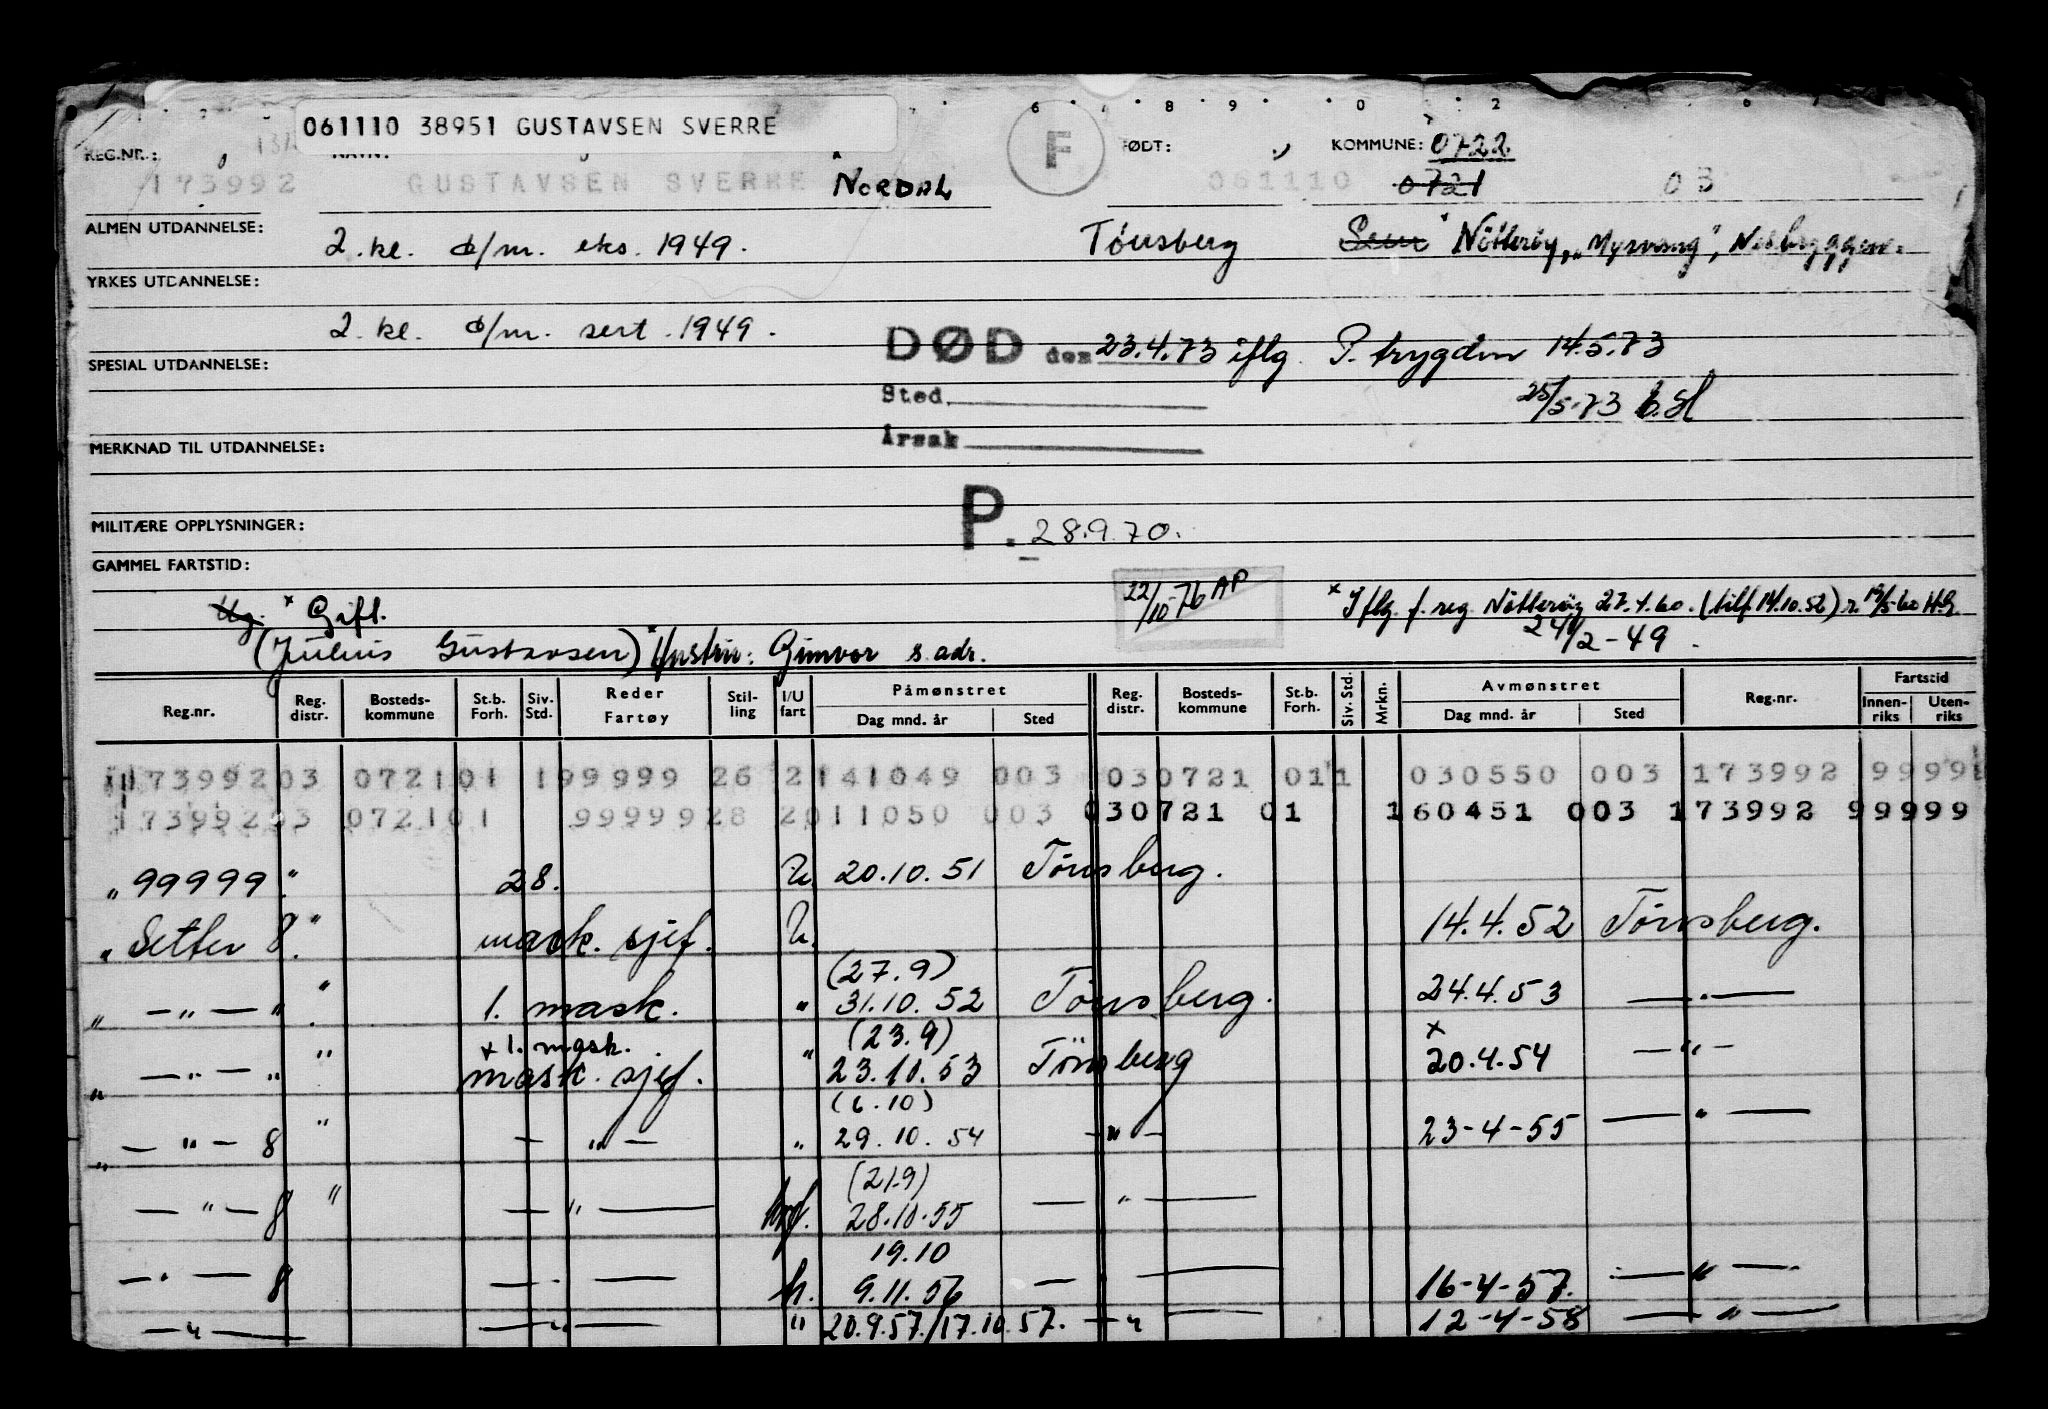 6 . . 8 . 9 . . 0 . 2
061110 38951 GUSTAVSEN SVERRE
REG.NR.: NAVN: F FØDT: KOMMUNE: 0722
173992 GUSTAVSEN SVERRE NORDAL 061110 0721 03
ALMEN UTDANNELSE: 2. kl. d/m. eks. 1949. Tönsberg Sem Nötteröy, „Myrvang", Nesbryggen.
YRKES UTDANNELSE:
2. kl. d/m. sert. 1949. DØD den 23.4.73 iflg. P. trygden 14.5.73
SPESIAL UTDANNELSE:
Sted 25/5-73
Årsak
MERKNAD TIL UTDANNELSE:
MILITÆRE OPPLYSNINGER: P. 28.9.70.
GAMMEL FARTSTID:
Ug. x Gift. 22/10-76 AP x Iflg f. reg Nötteröy 27.4.60. (tilf 14.10.52)
(Julius Gustavsen) x Hustru: Gunvor s. adr. 24/2-49.
Reg.nr. Reg. distr. Bosteds-kommune St.b. Forh. Siv. Std. Reder Fartøy Stil-ling I/U fart Påmønstret Dag mnd. år Sted Reg. distr. Bosteds-kommune St.b. Forh. Siv. Std. Mrkn. Avmønstret Dag mnd. år Sted Reg.nr. Fartstid Innen-riks Uten-riks
173992 03 0721 01 1 99999 26 2 141049 003 03 0721 01 1 1 030550 003 173992 9999
173992 03 0721 01 99999 28 2 011050 003 03 0721 01 1 160451 003 173992 99999
„ 99999 " 28. U 20.10.51 Tönsberg.
„ Setter 8 " mask. sjef. U. 14.4.52 Tönsberg.
(27.9)
„ — „ — " " 1. mask. " 31.10.52 Tönsberg. 24.4.53 — „ —
x 1. mask. (23.9) x
„ — „ — " " mask. sjef. " 23.10.53 Tönsberg 20.4.54 — „ —
(6.10)
„ — " — 8 " — „ — " 29.10.54 — „ — 23-4-55 — " —
(21.9)
— " — 8 " — " — 28.10.55 — " —
19.10
— „ — 8 — „ — h. 9.11.56 — — 16-4-57. — " —
— „ — — „ — " 20.9.57./17.10.57. — „ — 12-4-58 — " —